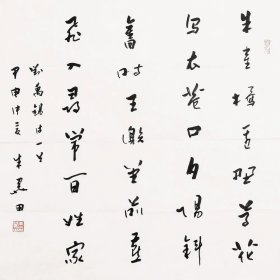 朱雀桥边野草花
乌衣巷口夕阳斜
旧时王谢堂前燕
飞入寻常百姓家
刘禹锡诗一首
甲申仲夏
朱
田